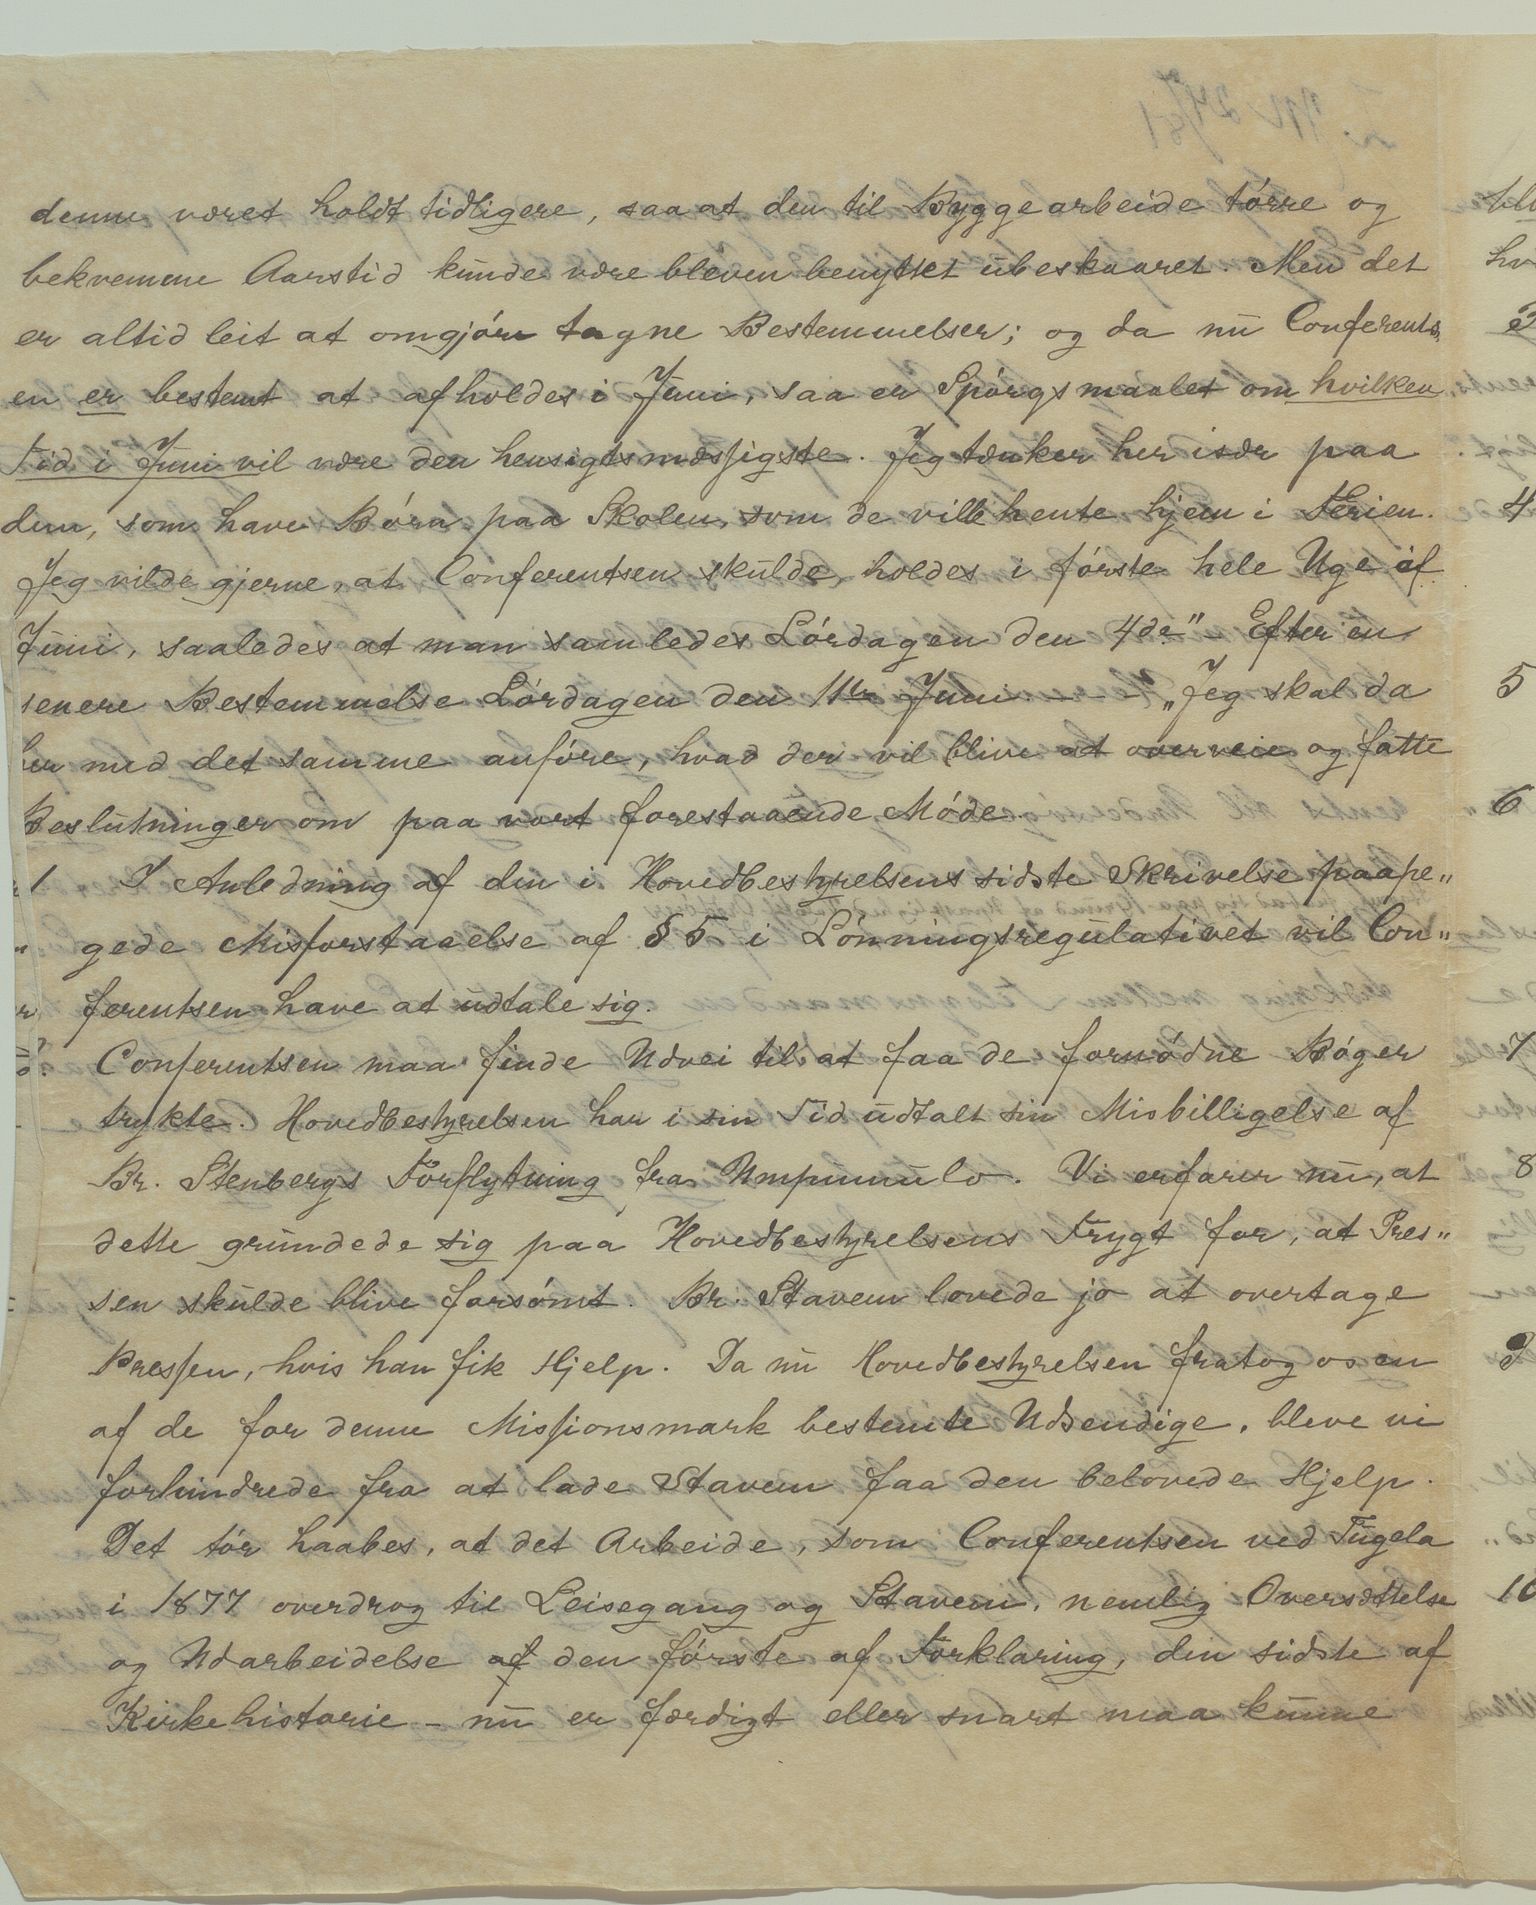 denne været holdt tidligere, saa at den til Byggearbeide tørre og
bekvemme Aarstid kunde være bleven benyttet ubeskaaret. Men det
er altid leit at omgjøre tagne Bestemmelser; og da nu Conferents„
en er bestemt at afholdes i Juni, saa er Spørgsmaalet om hvilken
Tid i Juni vil være den hensigtsmæssigste. Jeg tænker her især paa
dem, som have Børn paa Skolen, som de ville hente hjem i Ferien.
Jeg vilde gjerne, at Conferentsen skulde holdes i første hele Uge af
Juni, saaledes at man samledes Lørdagen den 4de" – Efter en
senere Bestemmelse Lørdagen den 11te Juni – „Jeg skal da
her med det samme anføre, hvad der vil blive at overveie og fatte
Beslutninger om paa vort forestaaende Møde.
1 I Anledning af den i Hovedbestyrelsens sidste Skrivelse paape„
gede Misforstaaelse af § 5 i Lønningsregulativet vil Con„
ferentsen have at udtale sig.
Conferentsen maa finde Udvei til at faa de fornødne Bøger
trykte. Hovedbestyrelsen har i sin Tid udtalt sin Misbilligelse af
Br. Stenbergs Forflytning fra Umpumulo. Vi erfarer nu, at
dette grundede sig paa Hovedbestyrelsens Frygt for, at Pres„
sen skulde blive forsømt. Br. Stavem lovede jo at overtage
Pressen, hvis han fik Hjelp. Da nu Hovedbestyrelsen fratog os en
af de for denne Missionsmark bestemte Udsendige, bleve vi
forhindrede fra at lade Stavem faa den belovede Hjelp.
Det tør haabes, at det Arbeide, som Conferentsen ved Tugela
i 1877 overdrog til Leisegang og Stavem, nemlig Oversættelse
og Udarbeidelse af den første af Forklaring, den sidste af
Kirkehistorie – nu er færdigt eller snart maa kunne
bli
hv
3
4
5
6
7
8
9
10